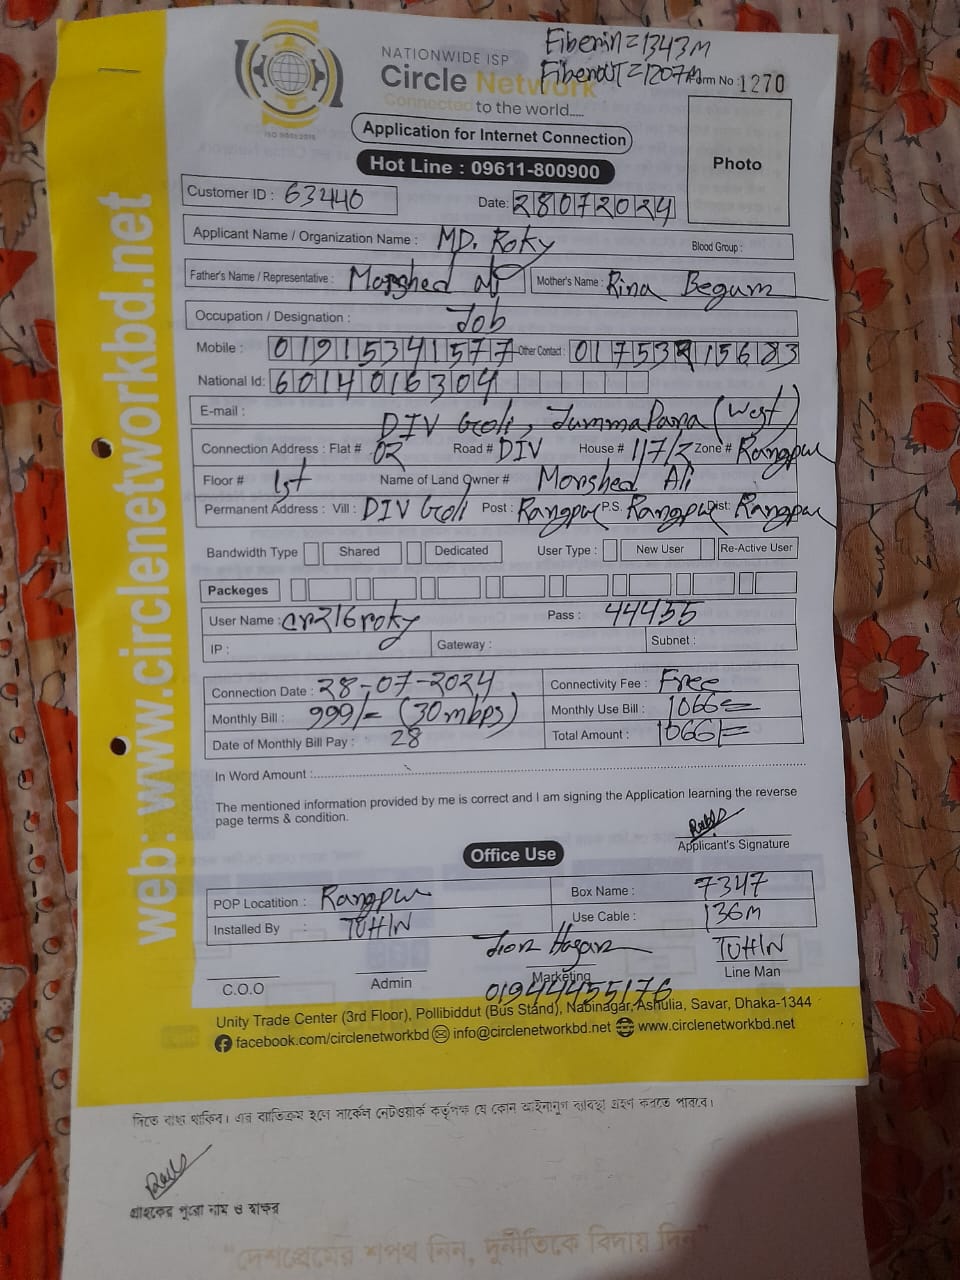 Fiberin=1343M
NATIONWIDE ISP
Fiberout=1207M Form No :1270
Circle Network
Connected to the world.....
ISO 9001:2015
Application for Internet Connection
Photo
Hot Line : 09611-800900
Customer ID : 63440
Date: 28072024
Applicant Name / Organization Name : MD. Roky Blood Group :
Father's Name / Representative : Morshed Ali Mother's Name : Rina Begum
Occupation / Designation : Job
Mobile : 01915341577 Other Contact : 01753215683
National Id: 6014016304
E-mail :
DIV Goli, JummaPara (West)
Connection Address : Flat # 02 Road # DIV House # 117/2 Zone # Rangpur
Floor # 1st Name of Land Owner # Morshed Ali
Permanent Address : Vill : DIV Goli Post : Rangpur P.S. Rangpur Dist: Rangpur
Bandwidth Type Shared Dedicated User Type : New User Re-Active User
Packeges
User Name : cn216roky Pass : 44455
IP : Gateway : Subnet :
Connection Date : 28-07-2024 Connectivity Fee : Free
Monthly Bill : 999/= (30mbps) Monthly Use Bill : 1066=
Date of Monthly Bill Pay : 28 Total Amount : 1066/=
In Word Amount :
The mentioned information provided by me is correct and I am signing the Application learning the reverse
page terms & condition.
Applicant's Signature
Office Use
POP Locatition : Rangpur Box Name : 7347
Installed By : TUHIN Use Cable : 136M
Hasan TUHIN
C.O.O Admin Marketing Line Man
01944455176
Unity Trade Center (3rd Floor), Pollibiddut (Bus Stand), Nabinagar, Ashulia, Savar, Dhaka-1344
facebook.com/circlenetworkbd info@circlenetworkbd.net www.circlenetworkbd.net
web: www.circlenetworkbd.net
দিতে বাধ্য থাকিব। এর ব্যতিক্রম হলে সার্কেল নেটওয়ার্ক কর্তৃপক্ষ যে কোন আইনানুগ ব্যবস্থা গ্রহণ করতে পারবে।
গ্রাহকের পুরো নাম ও স্বাক্ষর
"দেশপ্রেমের শপথ নিন, দুর্নীতিকে বিদায় দিন"